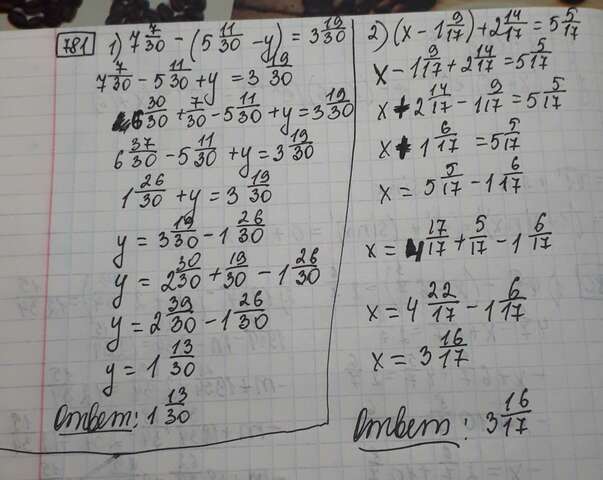 781 1) 7 7/30 - (5 11/30 - y) = 3 19/30
7 7/30 - 5 11/30 + y = 3 19/30
6 30/30 + 7/30 - 5 11/30 + y = 3 19/30
6 37/30 - 5 11/30 + y = 3 19/30
1 26/30 + y = 3 19/30
y = 3 19/30 - 1 26/30
y = 2 30/30 + 19/30 - 1 26/30
y = 2 39/30 - 1 26/30
y = 1 13/30
Ответ: 1 13/30
2) (x - 1 9/17) + 2 14/17 = 5 5/17
x - 1 9/17 + 2 14/17 = 5 5/17
x + 2 14/17 - 1 9/17 = 5 5/17
x + 1 6/17 = 5 5/17
x = 5 5/17 - 1 6/17
x = 4 17/17 + 5/17 - 1 6/17
x = 4 22/17 - 1 6/17
x = 3 16/17
Ответ: 3 16/17